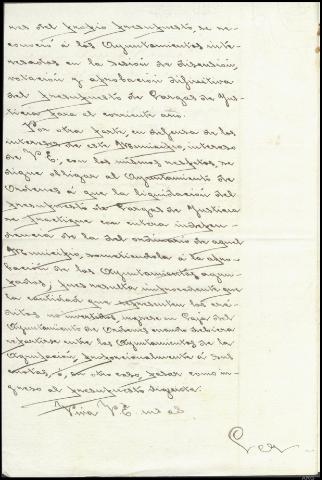 nes del propio presupuesto, se re-
conoció á los Ayuntamientos inte-
resados en la sesión de discusión,
votación y aprobación difinitiva
del presupuesto de Cargas de Jus-
ticia para el corriente año.
Por otra parte, en defensa de los
intereses de este Municipio, intereso
de V. E., con los mismos respetos, se
digne obligar al Ayuntamiento de
Ordenes á que la liquidación del
presupuesto de Cargas de Justicia
se practique con entera indepen-
dencia de la del ordinario de aquel
Municipio, sometiéndola á la apro-
bación de los Ayuntamientos agru-
pados, pues resulta improcedente que
la cantidad que representen los cré-
ditos no invertidos, ingrese en Caja del
Ayuntamiento de Ordenes cuando debiera
repartirse entre los Ayuntamientos de la
Agrupación, proporcionalmente á sus
cuotas, ó, en otro caso, pasar como in-
greso al presupuesto siguiente.
V. E.